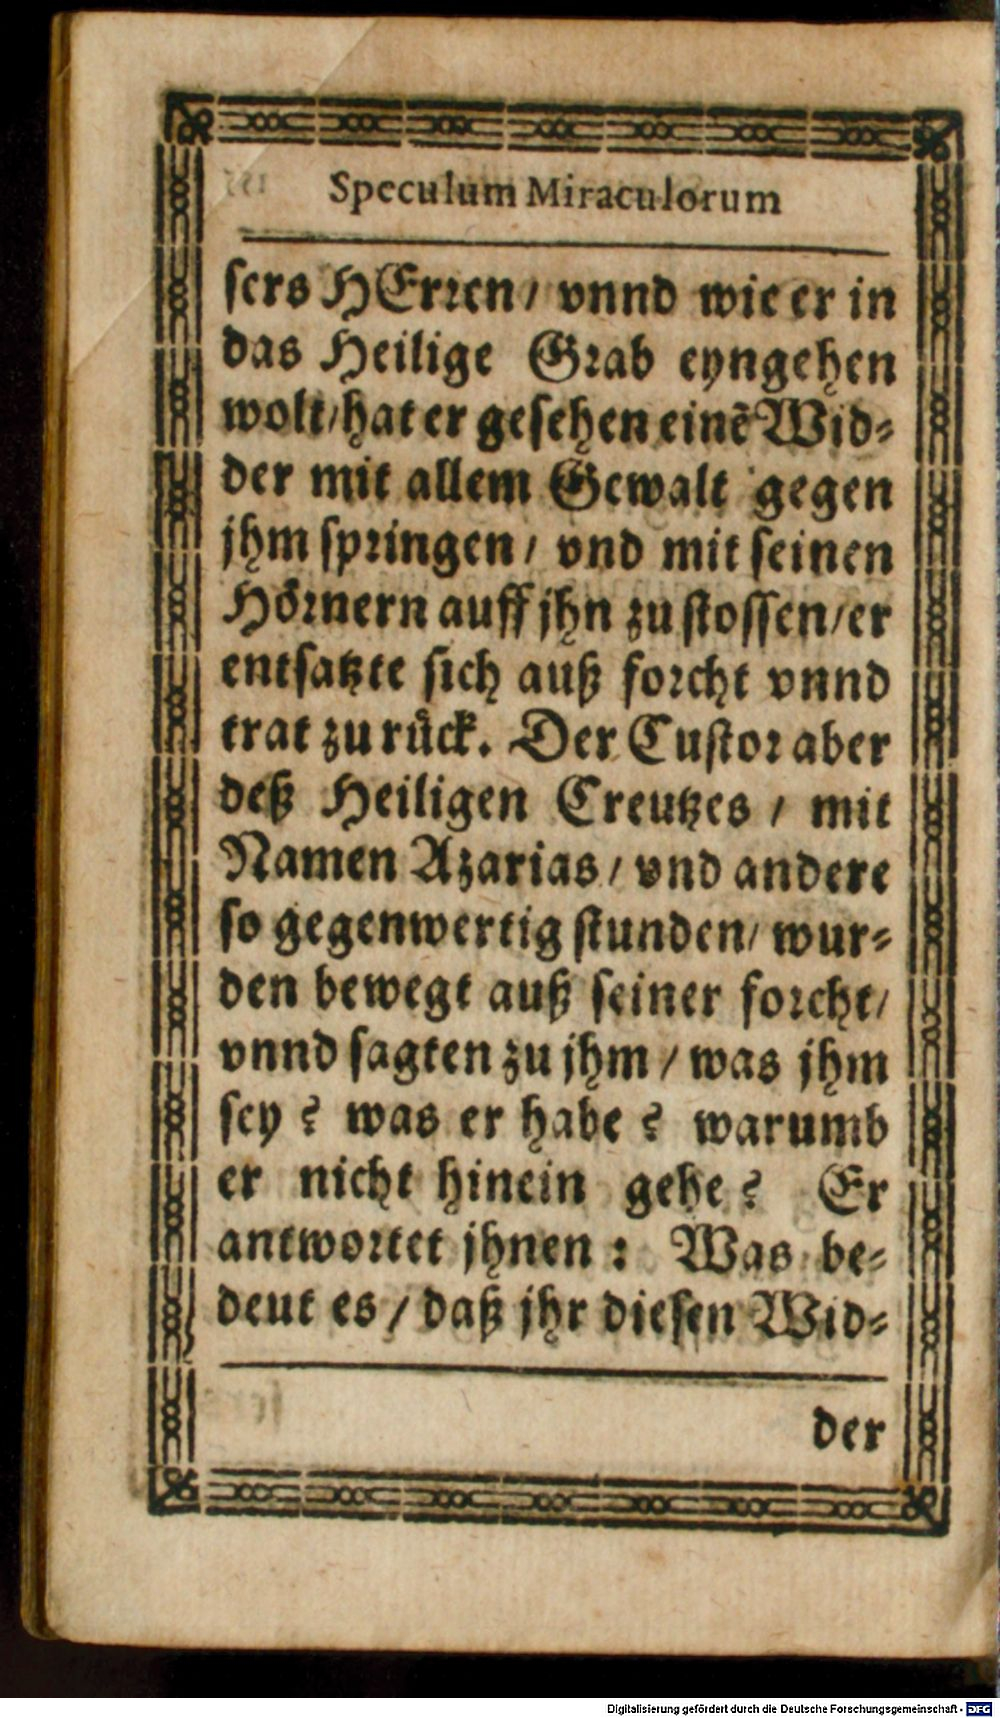 Speculum Miraculorum
sers HErren / vnnd wie er in
das Heilige Grab eyngehen
wolt / hat er gesehen einẽ Wid-
der mit allem Gewalt gegen
jhm springen / vnd mit seinen
Hörnern auff jhn zu stossen / er
entsatzte sich auß forcht vnnd
trat zu rück. Der Custor aber
deß Heiligen Creutzes / mit
Namen Azarias / vnd andere
so gegenwertig stunden / wur-
den bewegt auß seiner forcht /
vnnd sagten zu jhm / was jhm
sey ? was er habe ? warumb
er nicht hinein gehe ? Er
antwortet jhnen : Was be-
deut es / daß jhr diesen Wid-
der
Digitalisierung gefördert durch die Deutsche Forschungsgemeinschaft - DFG